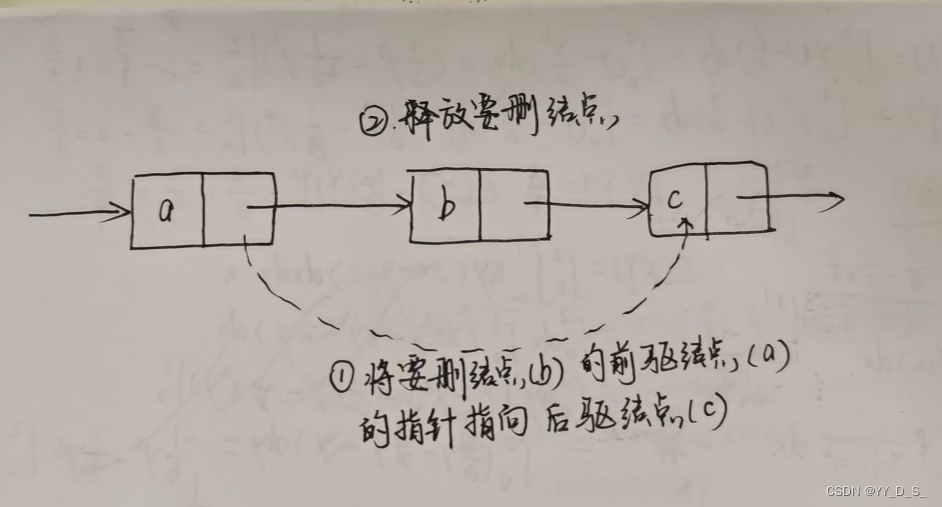 ②.释放要删结点
a
b
c
①将要删结点(b)的前驱结点(a)
的指针指向后驱结点(c)
CSDN @YY_D_S_